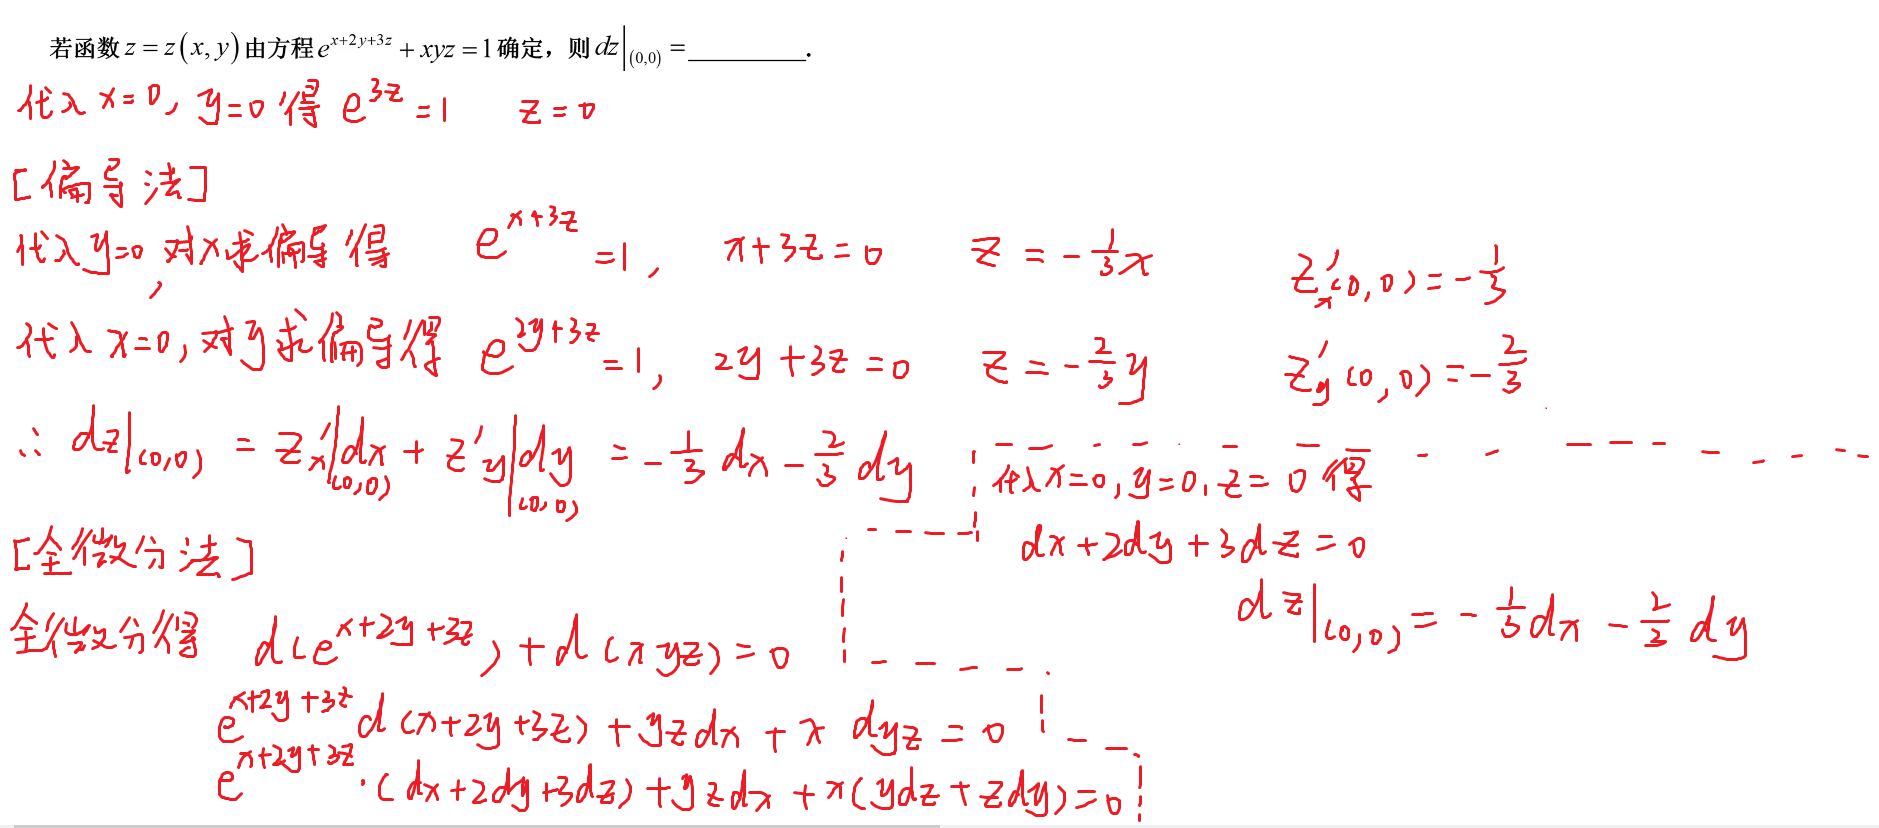 若函数 z = z(x, y) 由方程 e^{x+2y+3z} + xyz = 1 确定，则 dz|_{(0,0)} = ________.
代入 x=0, y=0 得 e^{3z} = 1 z = 0
[偏导法]
代入 y=0, 对x求偏导得 e^{x+3z} = 1, x+3z=0 z = -\frac{1}{3}x z'_x(0,0) = -\frac{1}{3}
代入 x=0, 对y求偏导得 e^{2y+3z} = 1, 2y+3z=0 z = -\frac{2}{3}y z'_y(0,0) = -\frac{2}{3}
∴ dz|_{(0,0)} = z'_x|_{(0,0)}dx + z'_y|_{(0,0)}dy = -\frac{1}{3}dx - \frac{2}{3}dy
[全微分法]
全微分得 d(e^{x+2y+3z}) + d(xyz) = 0
e^{x+2y+3z} d(x+2y+3z) + yzdx + x dyz = 0
e^{x+2y+3z}·(dx+2dy+3dz) + yzdx + x(ydz+zdy) = 0
代入x=0, y=0, z=0 得
dx+2dy+3dz=0
dz|_{(0,0)} = -\frac{1}{3}dx - \frac{2}{3}dy